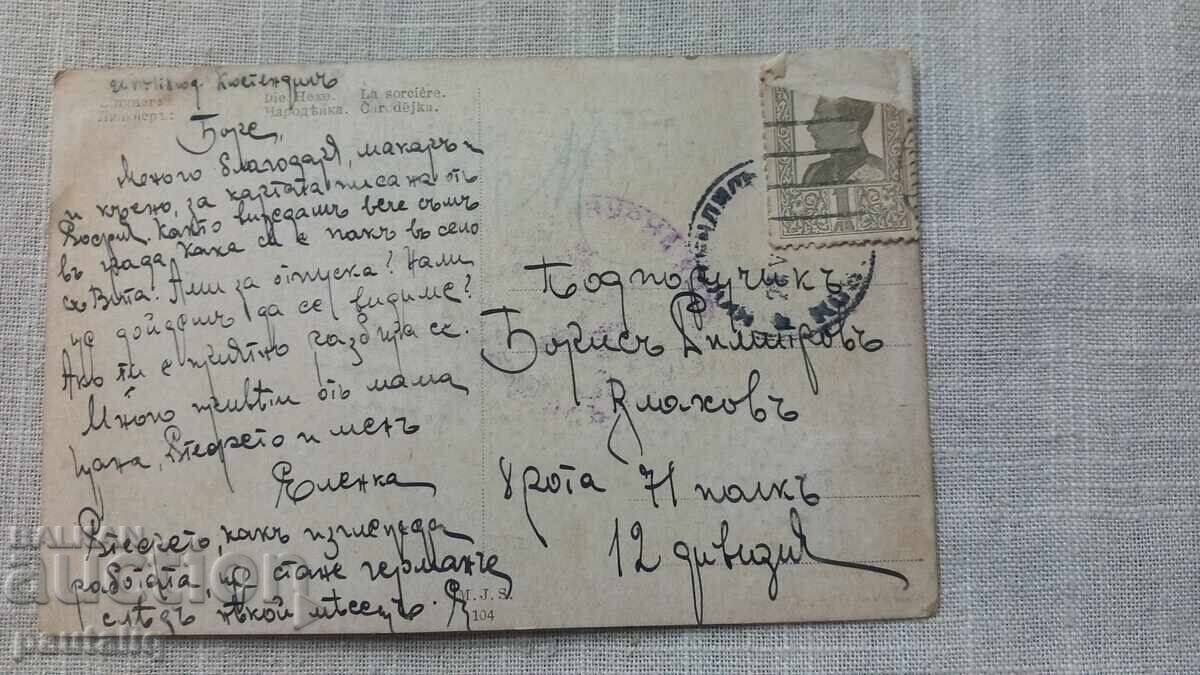 Кюстендилъ
Die Hexe. La sorcière.
Линкнеръ: Чародѣйка. Čarodějka.
Боре,
Много благодаря, макаръ
и късно, за картата писана отъ
Както виждашъ вече съмъ
въ града, кака си е пакъ въ село
съ Вита. Ами за отпуска? Нали
ще дойдешъ да се видиме?
Ако ти е приятно разбира се.
Много живѣли отъ мама
Цана, и менъ
Еленка
какъ изглежда
работата, ще стане германче
слѣдъ нѣкой мѣсецъ. Я
M. J. S.
104
1
Подпоручикъ
Борисъ Димитровъ
Влаховъ
8 рота 71 полкъ
12 дивизия
BALKAN
auction
pautaliq